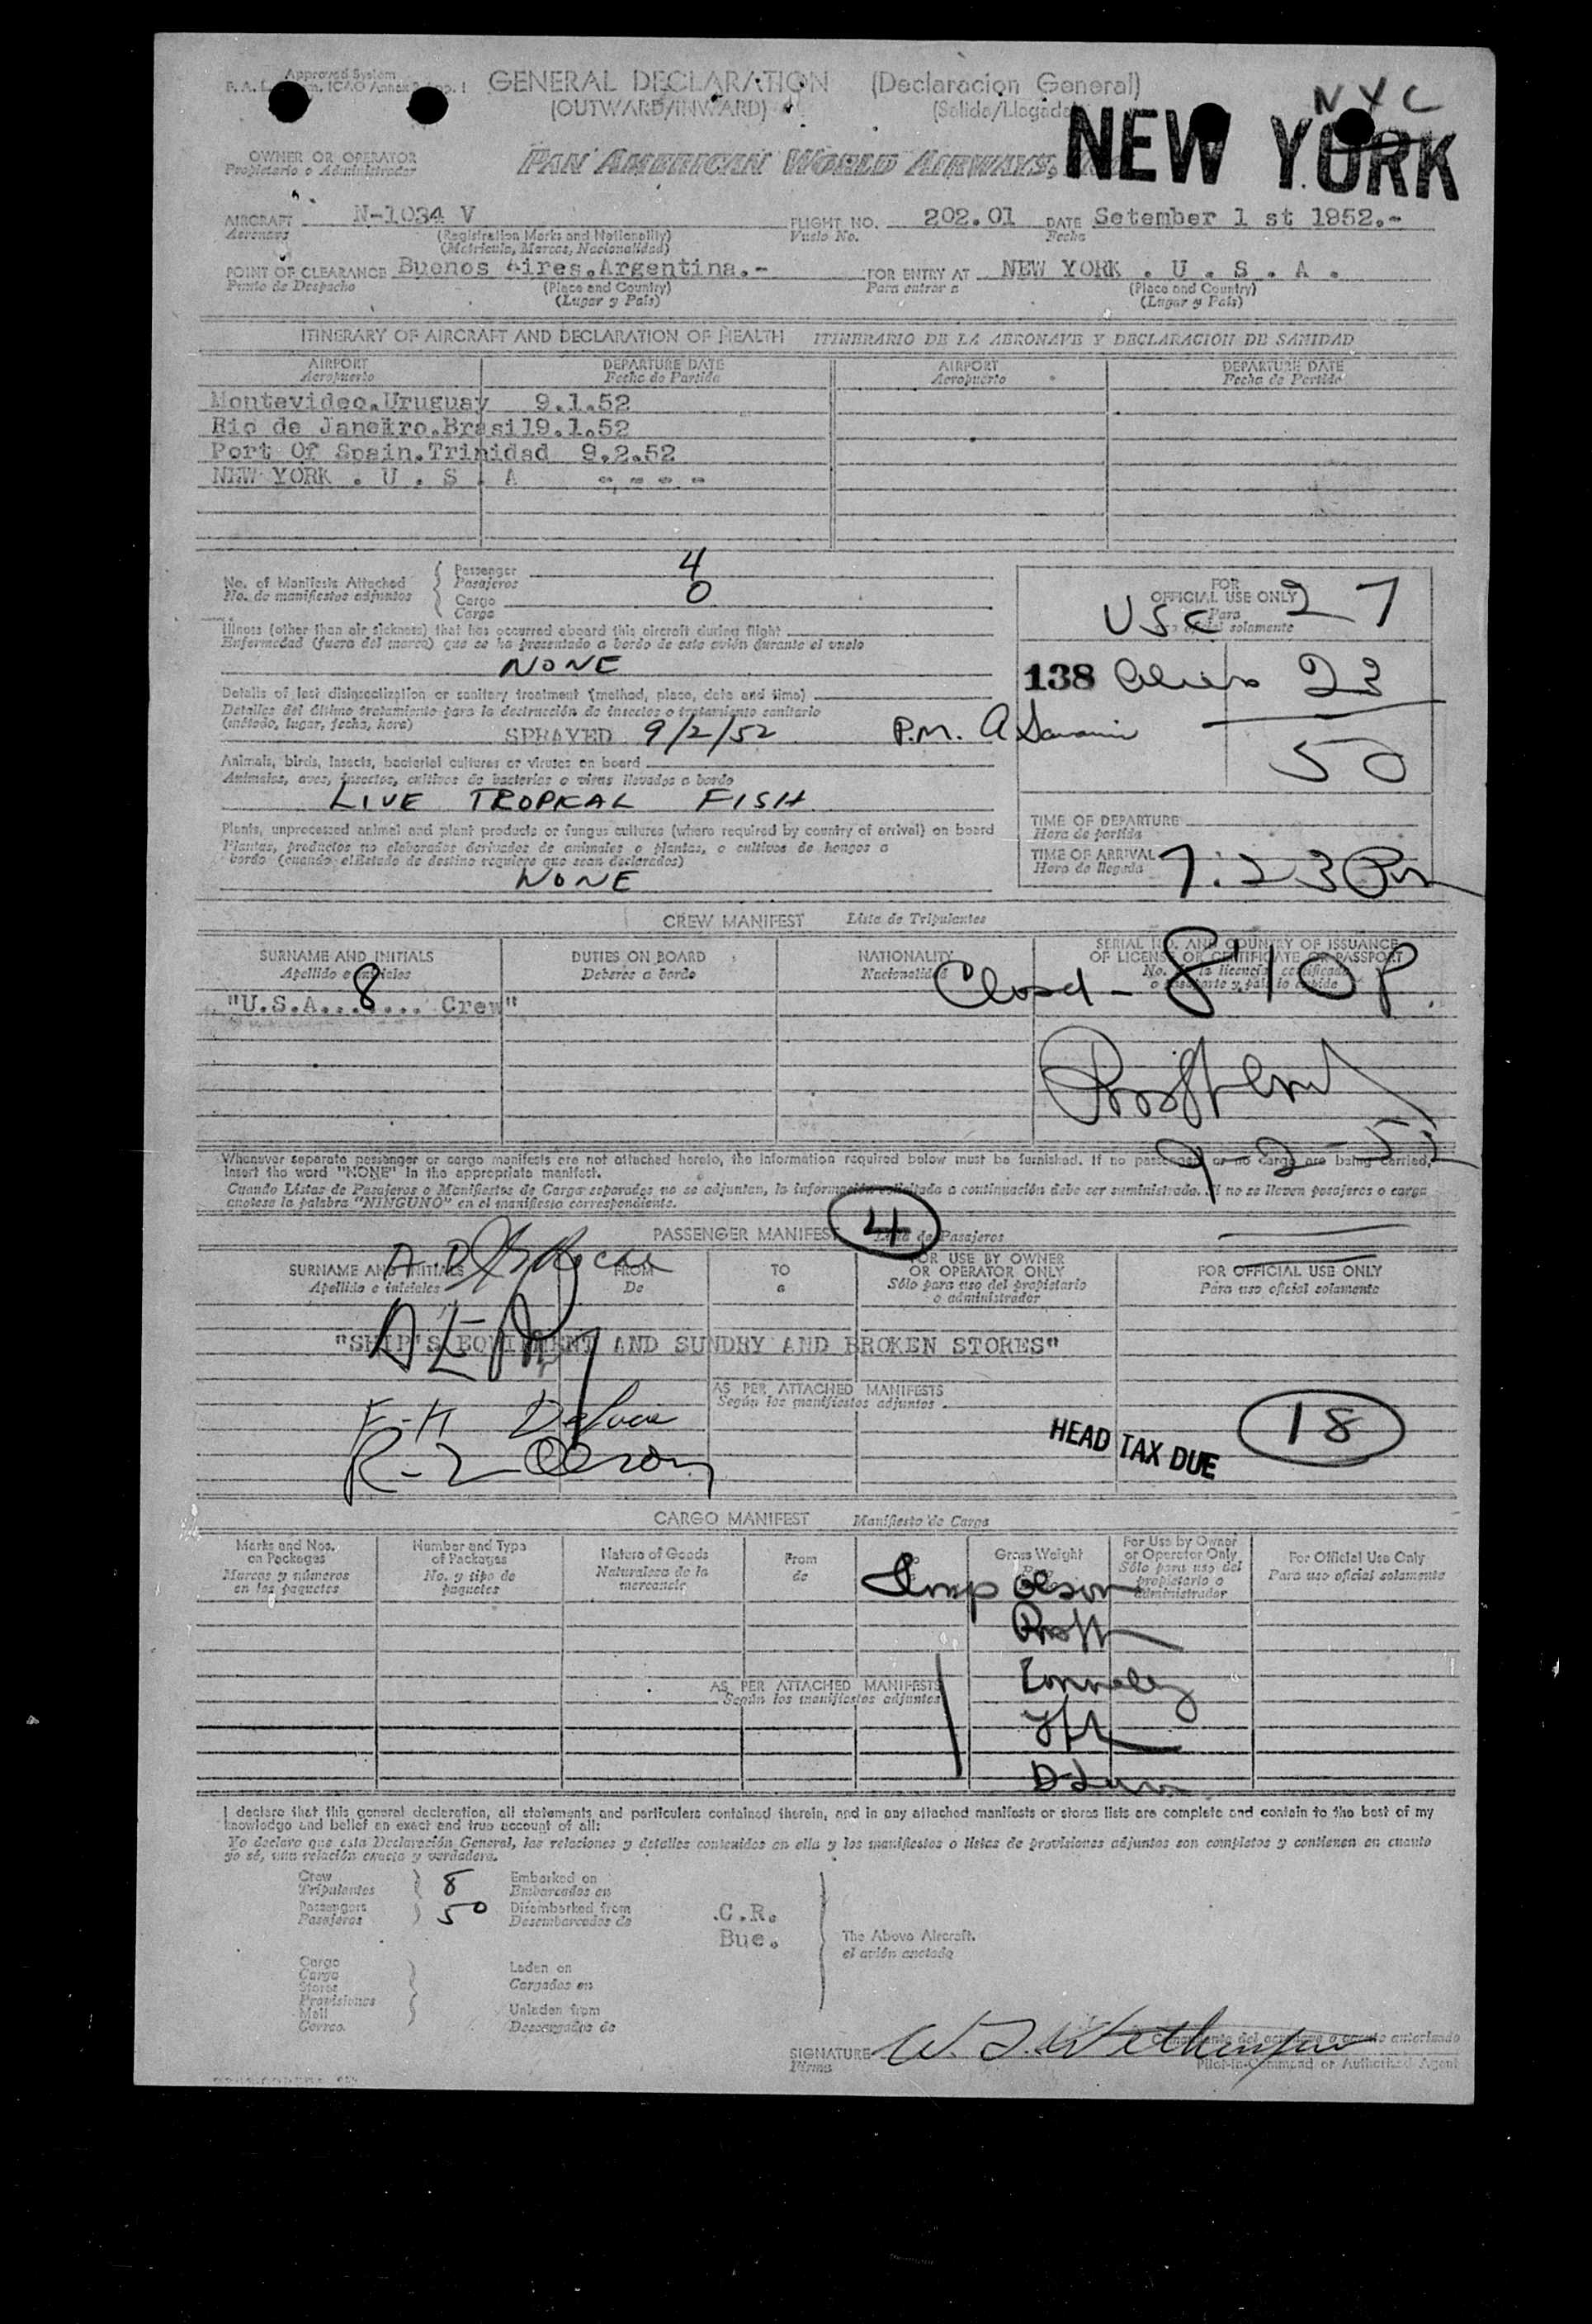 Approved System
GENERAL DECLARATION (Declaracion General)
(OUTWARD/INWARD) (Salida/Llegada)
NYC
NEW YORK
OWNER OR OPERATOR
Propietario o Administrador
PAN AMERICAN WORLD AIRWAYS,
AIRCRAFT N-1034 V FLIGHT NO. 202.01 DATE Setember 1 st 1952.-
Aeronave (Registration Marks and Nationality) Vuelo No. Fecha
(Matricula, Marcas, Nacionalidad)
POINT OF CLEARANCE Buenos Aires.Argentina.- FOR ENTRY AT NEW YORK . U . S . A .
Punto de Despacho (Place and Country) Para entrar a (Place and Country)
(Lugar y Pais) (Lugar y Pais)
ITINERARY OF AIRCRAFT AND DECLARATION OF HEALTH ITINERARIO DE LA AERONAVE Y DECLARACION DE SANIDAD
AIRPORT DEPARTURE DATE AIRPORT DEPARTURE DATE
Aeropuerto Fecha de Partida Aeropuerto Fecha de Partida
Montevideo.Uruguay 9.1.52
Rio de Janeiro.Brasil9.1.52
Port Of Spain.Trinidad 9.2.52
NEW YORK . U . S . A - - - -
No. of Manifests Attached Passenger 4
No. de manifiestos adjuntos Pasajeros
Cargo 0
Carga
Illness (other than air sickness) that has occurred aboard this aircraft during flight
Enfermedad (fuera del mareo) que se ha presentado a bordo de este avión durante el vuelo
NONE
Details of last disinsectization or sanitary treatment (method, place, date and time)
Detalles del último tratamiento para la destrucción de insectos o tratamiento sanitario
(método, lugar, fecha, hora)
SPRAYED 9/2/52 P.M.
Animals, birds, insects, bacterial cultures or viruses on board
Animales, aves, insectos, cultivos de bacterias o virus llevados a bordo
LIVE TROPICAL FISH
Plants, unprocessed animal and plant products or fungus cultures (where required by country of arrival) on board
Plantas, productos no elaborados derivados de animales o plantas, o cultivos de hongos a
bordo (cuando elEstado de destino requiere que sean declarados)
NONE
FOR
OFFICIAL USE ONLY
Para
uso oficial solamente
USC 27
138 Aliens 23
50
TIME OF DEPARTURE
Hora de partida
TIME OF ARRIVAL 7:23 PM
Hora de llegada
CREW MANIFEST Lista de Tripulantes
SURNAME AND INITIALS DUTIES ON BOARD NATIONALITY SERIAL NO. AND COUNTRY OF ISSUANCE
OF LICENSE OR CERTIFICATE OR PASSPORT
Apellido e iniciales Deberes a bordo Nacionalidad No. de la licencia, certificado
o pasaporte y país
"U.S.A...8... Crew"
Closed - 8:10 P.
9-2-52
Whenever separate passenger or cargo manifests are not attached hereto, the information required below must be furnished. If no passengers or no cargo are being carried,
insert the word "NONE" in the appropriate manifest.
Cuando Listas de Pasajeros o Manifiestos de Carga separados no se adjuntan, la información solicitada a continuación debe ser suministrada. Si no se llevan pasajeros o carga
anotese la palabra "NINGUNO" en el manifiesto correspondiente.
PASSENGER MANIFEST 4 Lista de Pasajeros
SURNAME AND INITIALS FROM TO FOR USE BY OWNER
OR OPERATOR ONLY FOR OFFICIAL USE ONLY
Apellido e iniciales De a Sólo para uso del propietario
o administrador Para uso oficial solamente
"SHIP'S EQUIPMENT AND SUNDRY AND BROKEN STORES"
AS PER ATTACHED MANIFESTS
Según los manifiestos adjuntos
HEAD TAX DUE 18
CARGO MANIFEST Manifiesto de Carga
Marks and Nos.
on Packages
Marcas y números
en los paquetes
Number and Type
of Packages
No. y tipo de
paquetes
Nature of Goods
Naturaleza de la
mercancia
From
de
Gross Weight
For Use by Owner
or Operator Only
Sólo para uso del
propietario o
administrador
For Official Use Only
Para uso oficial solamente
Insp Olson
Connelly
AS PER ATTACHED MANIFESTS
Según los manifiestos adjuntos
I declare that this general declaration, all statements and particulars contained therein, and in any attached manifests or stores lists are complete and contain to the best of my
knowledge and belief an exact and true account of all:
Yo declaro que esta Declaración General, las relaciones y detalles contenidos en ella y los manifiestos o listas de provisiones adjuntos son completos y contienen en cuanto
yo sé, una relación exacta y verdadera.
Crew 8 Embarked on
Tripulantes Embarcados en
Passengers 50 Disembarked from .C.R.
Pasajeros Desembarcados de
Bue.
The Above Aircraft.
el avión anotado
Cargo
Carga
Stores
Provisiones
Mail
Correo
Laden on
Cargados en
Unladen from
Descargados de
SIGNATURE
Firma
Pilot-in-Command or Authorized Agent